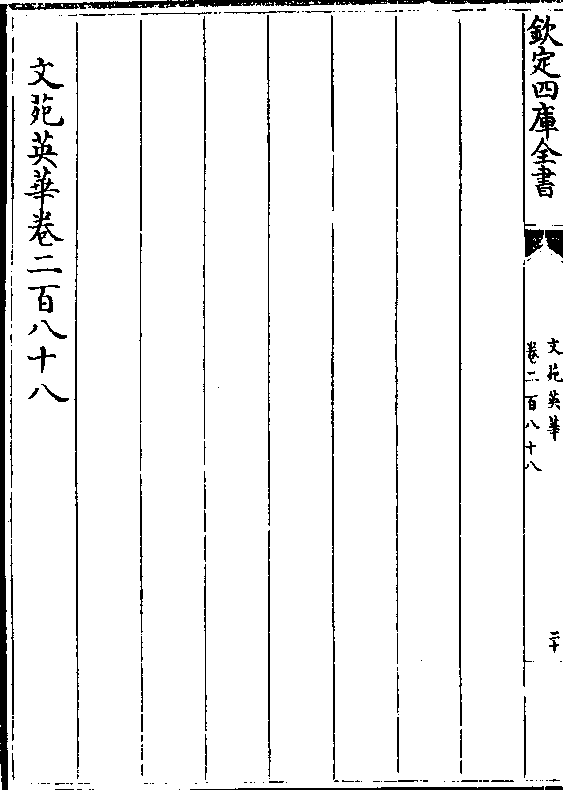 欽定四庫全書
文苑英華
卷二百八十八
二十
文苑英華卷二百八十八